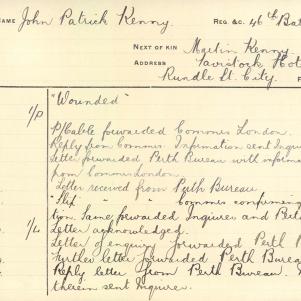 NAME John Patrick Kenny REG &C. 46th Bat
NEXT OF KIN Martin Kenny
ADDRESS Tavistock Hot
Rundle St. City.
1/P "Wounded"
P/Cable forwarded Commr London.
Reply from Commr. Information sent Inquir
Letter forwarded Perth Bureau with informa
from Commr London.
Letter received from Perth Bureau.
"Slip " " Commr confirming
tion. Same forwarded Inquirer and Perth
1/L Letter acknowledged.
Letter of enquiry forwarded Perth
Further letter forwarded Perth Bureau
Reply letter from Perth Bureau.
therein sent Inquirer.